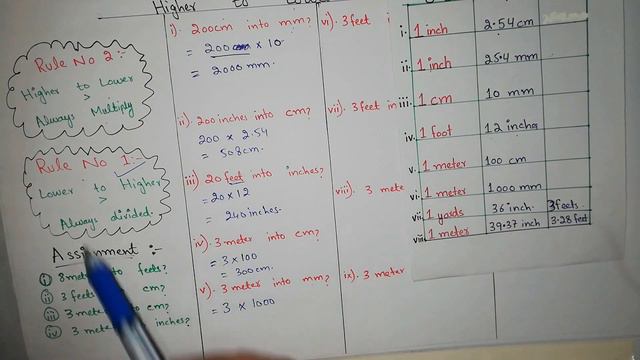 Higher to
Rule No 2:-
Higher to Lower
>
Always Multiply
Rule No 1:-
Lower to Higher
>
Always divided.
Assignment :-
i to feets?
ii 3 feets cm?
iii 3 met to cm?
iv 3 mete inches?
i). 200cm into mm?
= 200 cm × 10
= 2000 mm.
ii). 200 inches into cm?
200 × 2.54
= 508cm.
iii) 20 feet into inches?
= 20 × 12
= 240 inches.
iv). 3 meter into cm?
= 3 × 100
= 300 cm.
v). 3 meter into mm?
= 3 × 1000
vi). 3 feet i
vii). 3 feet in
viii). 3 mete
ix). 3 meter
i. 1 inch 2.54 cm
ii. 1 inch 25.4 mm
iii. 1 cm 10 mm
iv. 1 foot 12 inches
v. 1 meter 100 cm
vi. 1 meter 1000 mm
vii. 1 yards 36 inch. 3 feets
viii. 1 meter 39.37 inch 3.28 feet